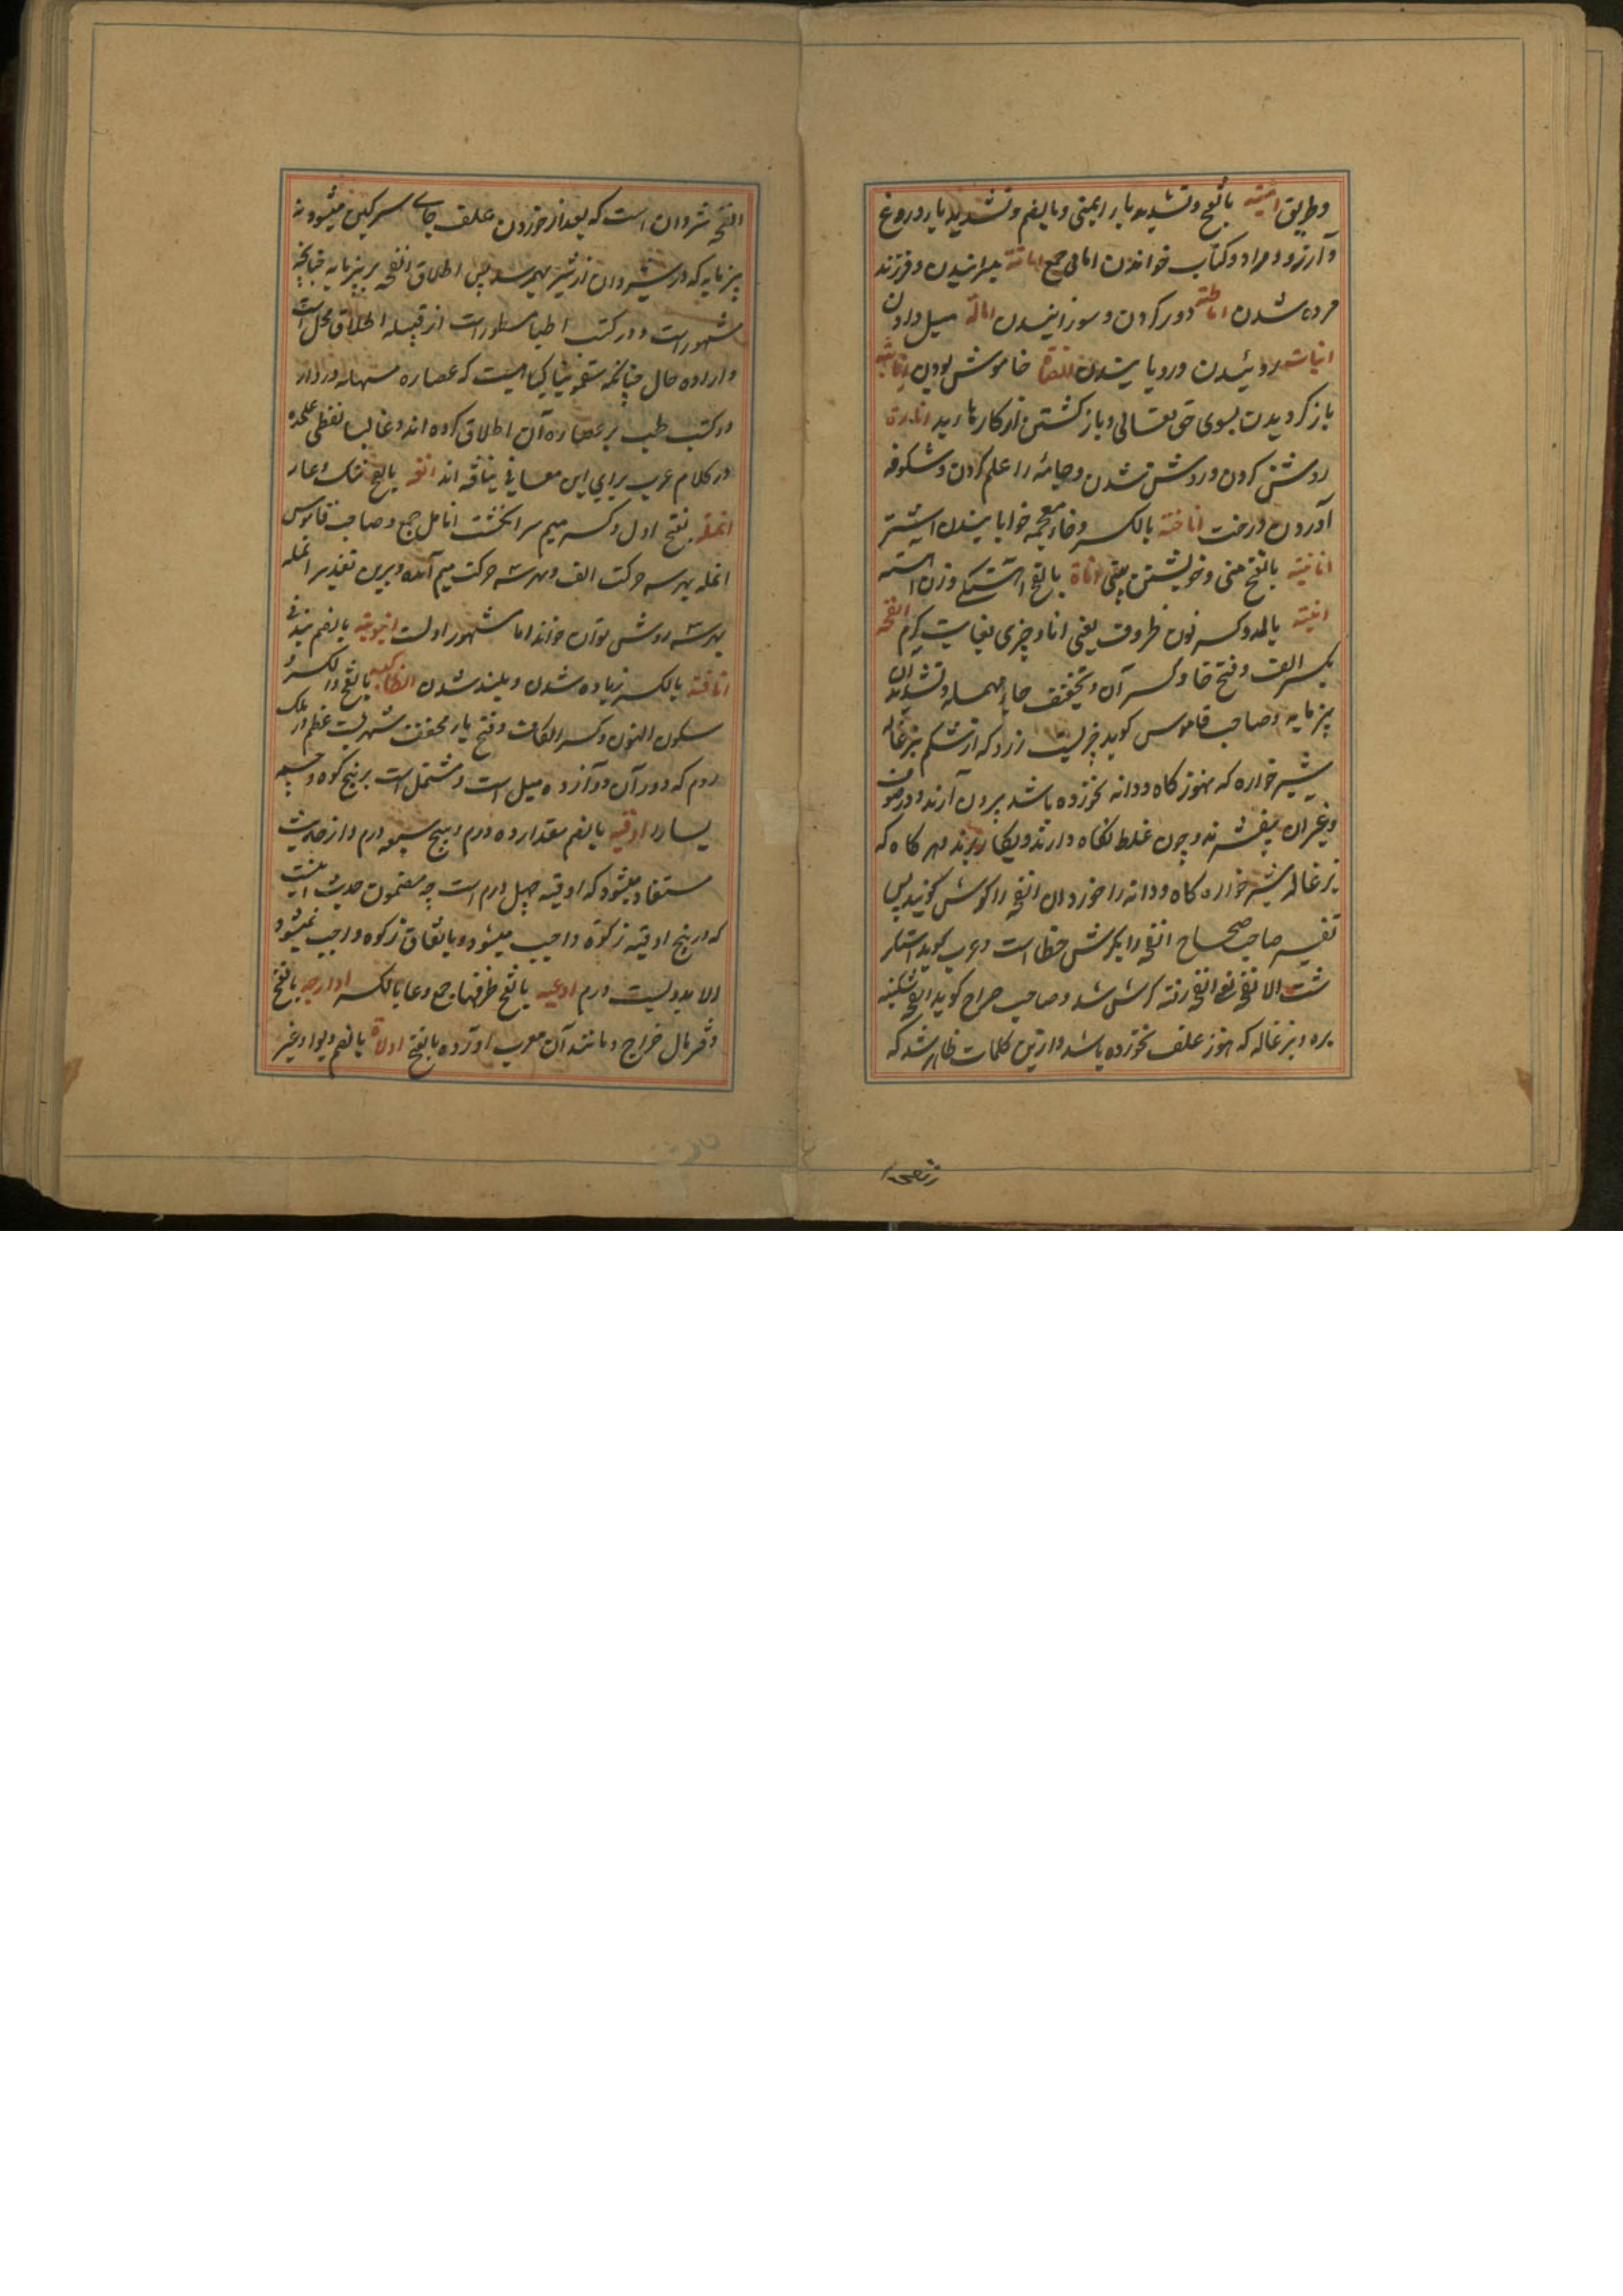 وطریق امنیة بالفتح وتشدید یا ایمنی وبالضم وتشدید یا دروغ
وآرزو ومراد وکتاب خواندن امانی جمع اماتة میرانیدن وفرزند
مرده شدن اماطة دور کردن وسوزانیدن امالة میل دادن
انبات روئیدن ورویانیدن انصات خاموش بودن انابة
باز گردیدن بسوی حق تعالی وباز گشتن از کارها بد انارة
روشن کردن وروشن شدن وجامه را علم کردن وشکوفه
آوردن درخت اناخة بالکسر وخاء معجمه خوابانیدن اشتر
انانیة بالفتح منی وخویشتن بینی اناة بالفتح آهستگی وزن آهسته
انیة بالمد وکسر نون ظروف یعنی اناء وچیزی بغایت گرم انفحه
بکسر الف وفتح فا وکسر آن وتخفیف حاء مهمله وتشدید آن
پنیر مایه وصاحب قاموس گوید چیزیست زرد که از شکم بزغاله
شیر خواره که هنوز کاه ودانه نخورده باشد بیرون آرند ودر صوف
وغیر آن بیفشرند وچون غلظ نگاه دارند وبکار برند هر گاه که
بزغاله شیر خواره کاه ودانه را خورد آن انفحه را کرش گویند پس
تفسیر صاحب صحاح انفحه را بکرش خطا است وعرب گوید استکر
شت الانفحه یعنی انفحه رفته کرش شد وصاحب صراح گوید انفحه شکنبه
بره وبزغاله که هنوز علف نخورده باشد وازین کلمات ظاهر شد که
انفحه شردان است که بعد از خوردن علف جای سرگین میشود نه
پنیر مایه که در شیردان از شیر بهم رسد پس اطلاق انفحه بر پنیر مایه چنانچه
مشهور است ودر کتب اطبا مسطور است از قبیله اطلاق محل است
واراده حال چنانکه سقمونیا گیاهیست که عصاره مسهله دارد
در کتب طب بر عصاره آن اطلاق کرده اند وغالبا لفظی علحده
در کلام عرب برای این معانی نیافته اند انفه بالفتح ننگ وعار
انمله بفتح اول وکسر میم سر انگشت انامل جمع وصاحب قاموس
انمله بهر سه حرکت الف وبهر سه حرکت میم آمده وبرین تقدیر انمله
بهر نه روش توان خواند اما مشهور اولست انبوبة بالضم
انافة بالکسر زیاده شدن وبلند شدن انطاکیه بالفتح والکسر
سکون النون وکسر الکاف وفتح یاء مخفف شهریست عظیم در ملک
روم که دور آن دوازده میل است ومشتمل است بر پنج کوه وچشمه
بسیار اوقیه بالضم مقدار ده درم وپنج سبع درم واز حدیث
مستفاد میشود که اوقیه چهل درم است چه مضمون حدیث اینست
که در پنج اوقیه زکوة واجب میشود وباتفاق زکوه واجب نمیشود
الا بدویست درم اوعیه بالفتح ظرفها جمع وعا بالکسر اوارجه بالفتح
دفتر مال خراج ومانند آن معرب آورده بالفتح اولاة بالضم وبواو غیر